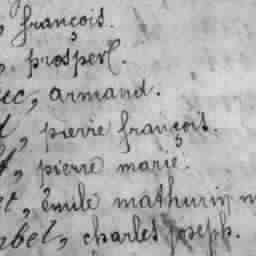 , françois.
, prosper.
ec, armand.
, pierre françois.
, pierre marie.
et, émile mathurin
bel, charles joseph.